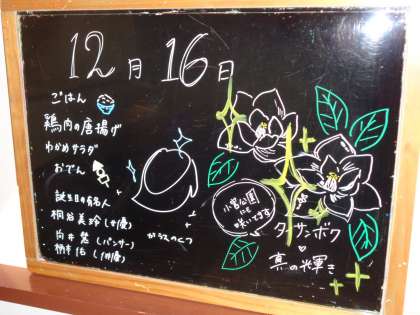 12月16日
ごはん
鶏肉の唐揚げ
わかめサラダ
おでん
誕生日の有名人
桐谷美玲(女優)
向井慧(パンサー)
柄本佑(俳優)
ガラスのくつ
小宮公園
にも
咲いてます
タイサンボク
真の輝き